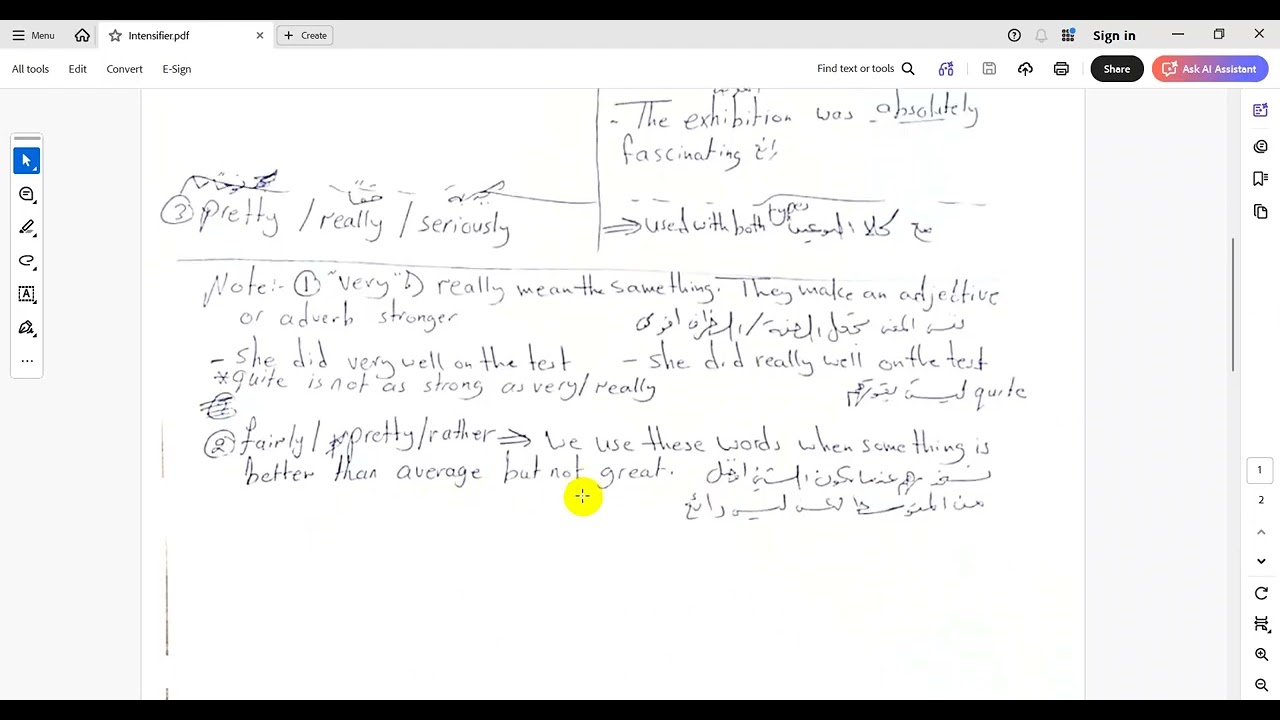 Menu
Intensifier.pdf
Create
Sign in
All tools
Edit
Convert
E-Sign
Find text or tools
Share
Ask AI Assistant
- The exhibition was absolutely
fascinating رائع
حقًا
③ pretty / really / seriously
⇒ used with both types مع كلا النوعين
Note:- ① "very" & really mean the same thing. They make an adjective
or adverb stronger
نفس المعنى تجعل الصفة / الظرف أقوى
- She did very well on the test
- She did really well on the test
* quite is not as strong as very/really
quite ليست بقوتهم
② fairly / pretty/rather ⇒ we use these words when something is
better than average but not great.
عندما يكون الشيء أفضل
من المتوسط لكن ليس رائع
1
2